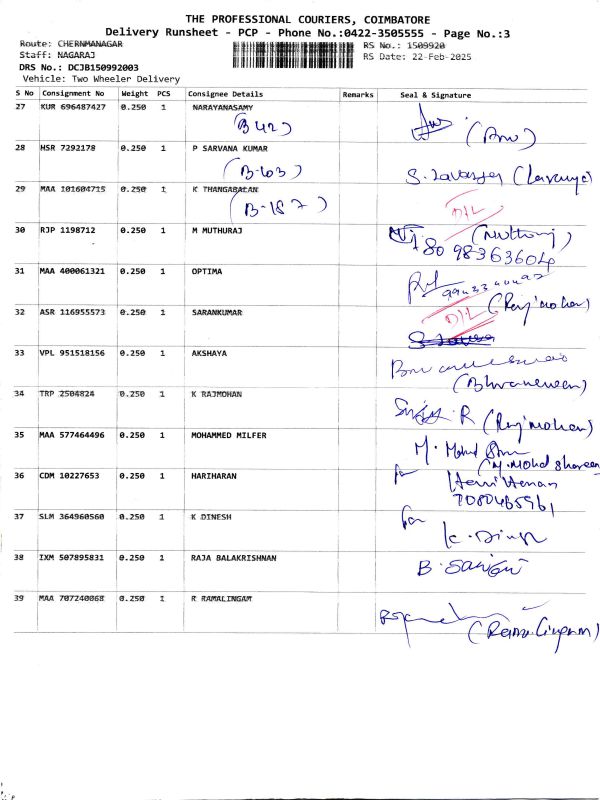 THE PROFESSIONAL COURIERS, COIMBATORE
Delivery Runsheet - PCP - Phone No.:0422-3505555 - Page No.:3
Route: CHERNMANAGAR RS No.: 1509920
Staff: NAGARAJ RS Date: 22-Feb-2025
DRS No.: DCJB150992003
Vehicle: Two Wheeler Delivery
S No Consignment No Weight PCS Consignee Details Remarks Seal & Signature
27 KUR 696487427 0.250 1 NARAYANASAMY
(B 42) (Anu)
28 HSR 7292178 0.250 1 P SARVANA KUMAR
(B-103) (Lavanya)
29 MAA 101604715 0.250 1 K THANGABALAN
(B-187) D/L
30 RJP 1198712 0.250 1 M MUTHURAJ (Muthuraj)
8098363604
31 MAA 400061321 0.250 1 OPTIMA
(Raj mohan)
32 ASR 116955573 0.250 1 SARANKUMAR D/L
33 VPL 951518156 0.250 1 AKSHAYA
34 TRP 2504824 0.250 1 K RAJMOHAN
R (Raj mohan)
35 MAA 577464496 0.250 1 MOHAMMED MILFER
M. Mohd
(M.Mohd Shareen
36 CDM 10227653 0.250 1 HARIHARAN for
7080465961
37 SLM 364960560 0.250 1 K DINESH for
K. Dinesh
38 IXM 507895831 0.250 1 RAJA BALAKRISHNAN
B.
39 MAA 707240068 0.250 1 R RAMALINGAM
(Rama Lingam)